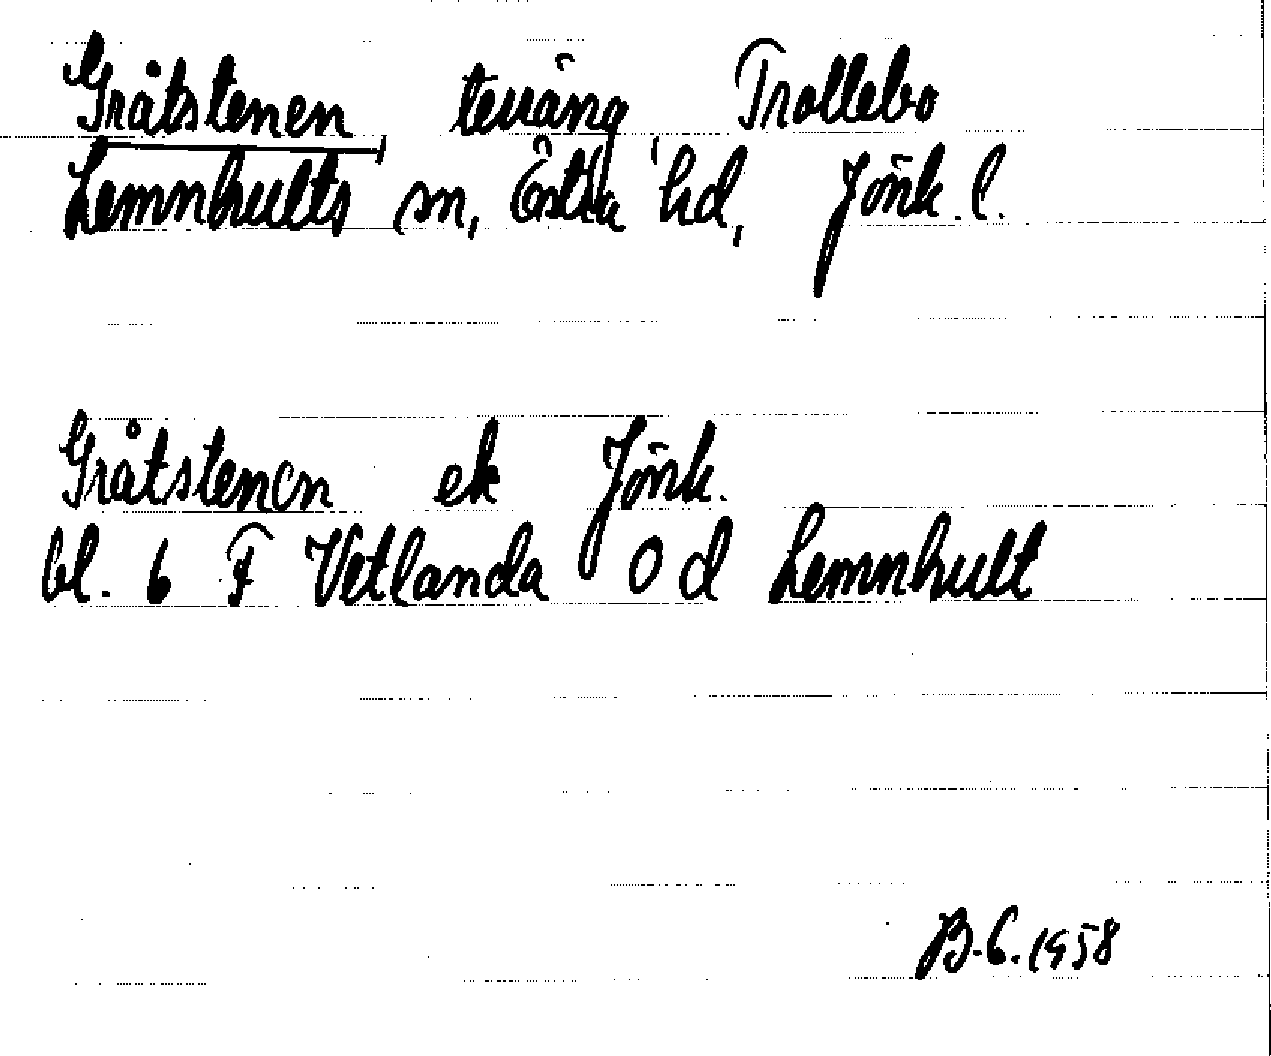 Gråtstenen terräng Trollebo
Lemnhults sn, Östra hd, Jönk. l.
Gråtstenen ek Jönk.
bl. 6 F Vetlanda 0 d Lemnhult
B.G. 1958